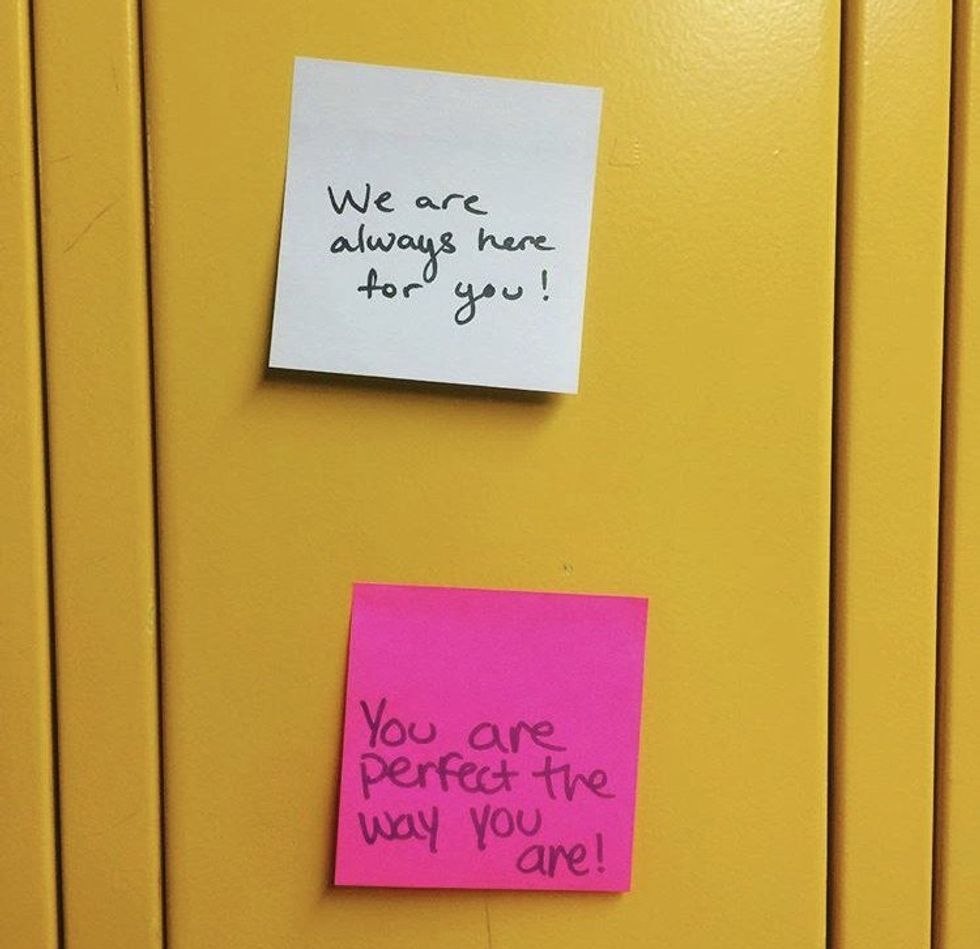 We are
always here
for you!
You are
perfect the
way you
are!